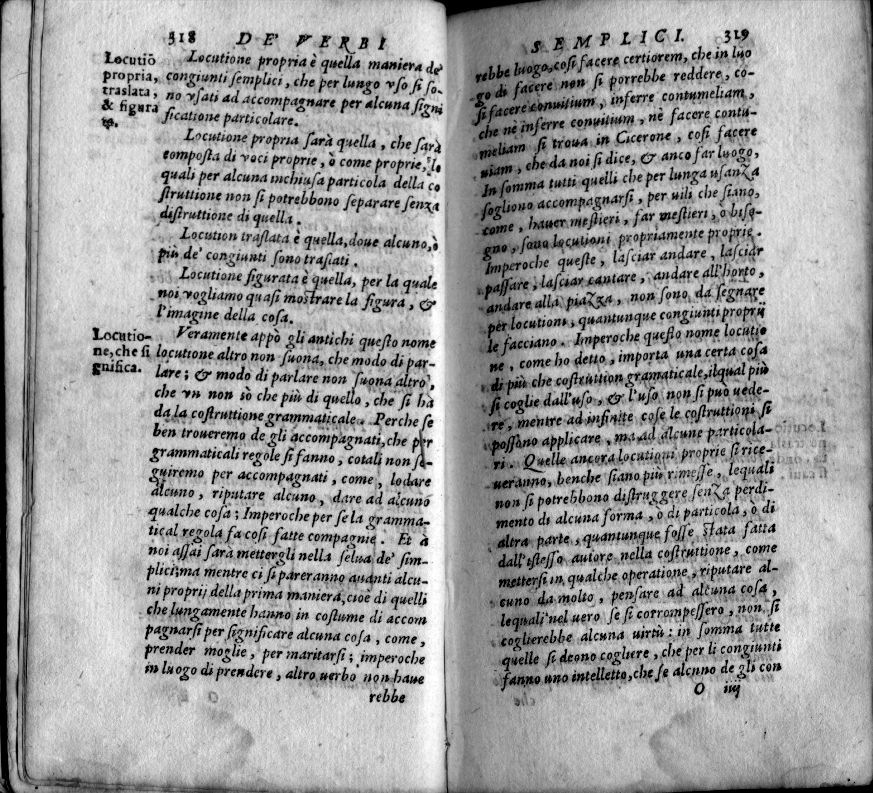 318 DE' VERBI
Locutiō
propria,
traslata,
& figura
Locutione propria è quella maniera de'
congiunti semplici, che per lungo vso si so-
no vsati ad accompagnare per alcuna signi
ficatione particolare.
Locutione propria sarà quella, che sarà
composta di voci proprie, ò come proprie, le
quali per alcuna inchiusa particola della co
struttione non si potrebbono separare senza
distruttione di quella.
Locution traslata è quella, doue alcuno, ò
più de' congiunti sono traslati.
Locutione figurata è quella, per la quale
noi vogliamo quasi mostrare la figura, &
l'imagine della cosa.
Locutio-
ne, che si
gnifica.
Veramente appò gli antichi questo nome
locutione altro non suona, che modo di par-
lare; & modo di parlare non suona altro,
che vn non sò che più di quello, che si hà
da la costruttione grammaticale. Perche se
ben troueremo de gli accompagnati, che per
grammaticali regole si fanno, cotali non se-
guiremo per accompagnati, come, lodare
alcuno, riputare alcuno, dare ad alcuno
qualche cosa; Imperoche per se la gramma-
tical regola fa cosi fatte compagnie. Et à
noi assai sarà mettergli nella selua de' sim-
plici; ma mentre ci si pareranno auanti alcu-
ni proprij della prima maniera, cioè di quelli
che lungamente hanno in costume di accom
pagnarsi per significare alcuna cosa, come,
prender moglie, per maritarsi; imperoche
in luogo di prendere, altro uerbo non haue
rebbe
SEMPLICI. 319
rebbe luogo, cosi facere certiorem, che in luo
go di facere non si porrebbe reddere, co-
si facere conuitium, inferre contumeliam,
che nè inferre conuitium, nè facere contu-
meliam si troua in Cicerone, cosi facere
uiam, che da noi si dice, & anco far luogo,
In somma tutti quelli che per lunga usanza
sogliono accompagnarsi, per uili che siano,
come, hauer mestieri, far mestieri, o biso-
gno, sono locutioni propriamente proprie.
Imperoche queste, lasciar andare, lasciar
passare, lasciar cantare, andare all'horto,
andare alla piazza, non sono da segnare
per locutioni, quantunque congiunti proprij
le facciano. Imperoche questo nome locutio
ne, come ho detto, importa una certa cosa
di più che costruttion gramaticale, ilqual più
si coglie dall'uso, & l'uso non si può uede-
re, mentre ad infinite cose le costruttioni si
possono applicare, ma ad alcune particola-
ri. Quelle ancora locutioni proprie si rice-
ueranno, benche siano più rimesse, lequali
non si potrebbono distruggere senza perdi-
mento di alcuna forma, o di particola, o di
altra parte, quantunque fosse stata fatta
dall'istesso autore nella costruttione, come
mettersi in qualche operatione, riputare al-
cuno da molto, pensare ad alcuna cosa,
lequali nel uero se si corrompessero, non si
coglierebbe alcuna virtù: in somma tutte
quelle si deono cogliere, che per li congiunti
fanno uno intelletto, che se alcuno de gli con
O iiij